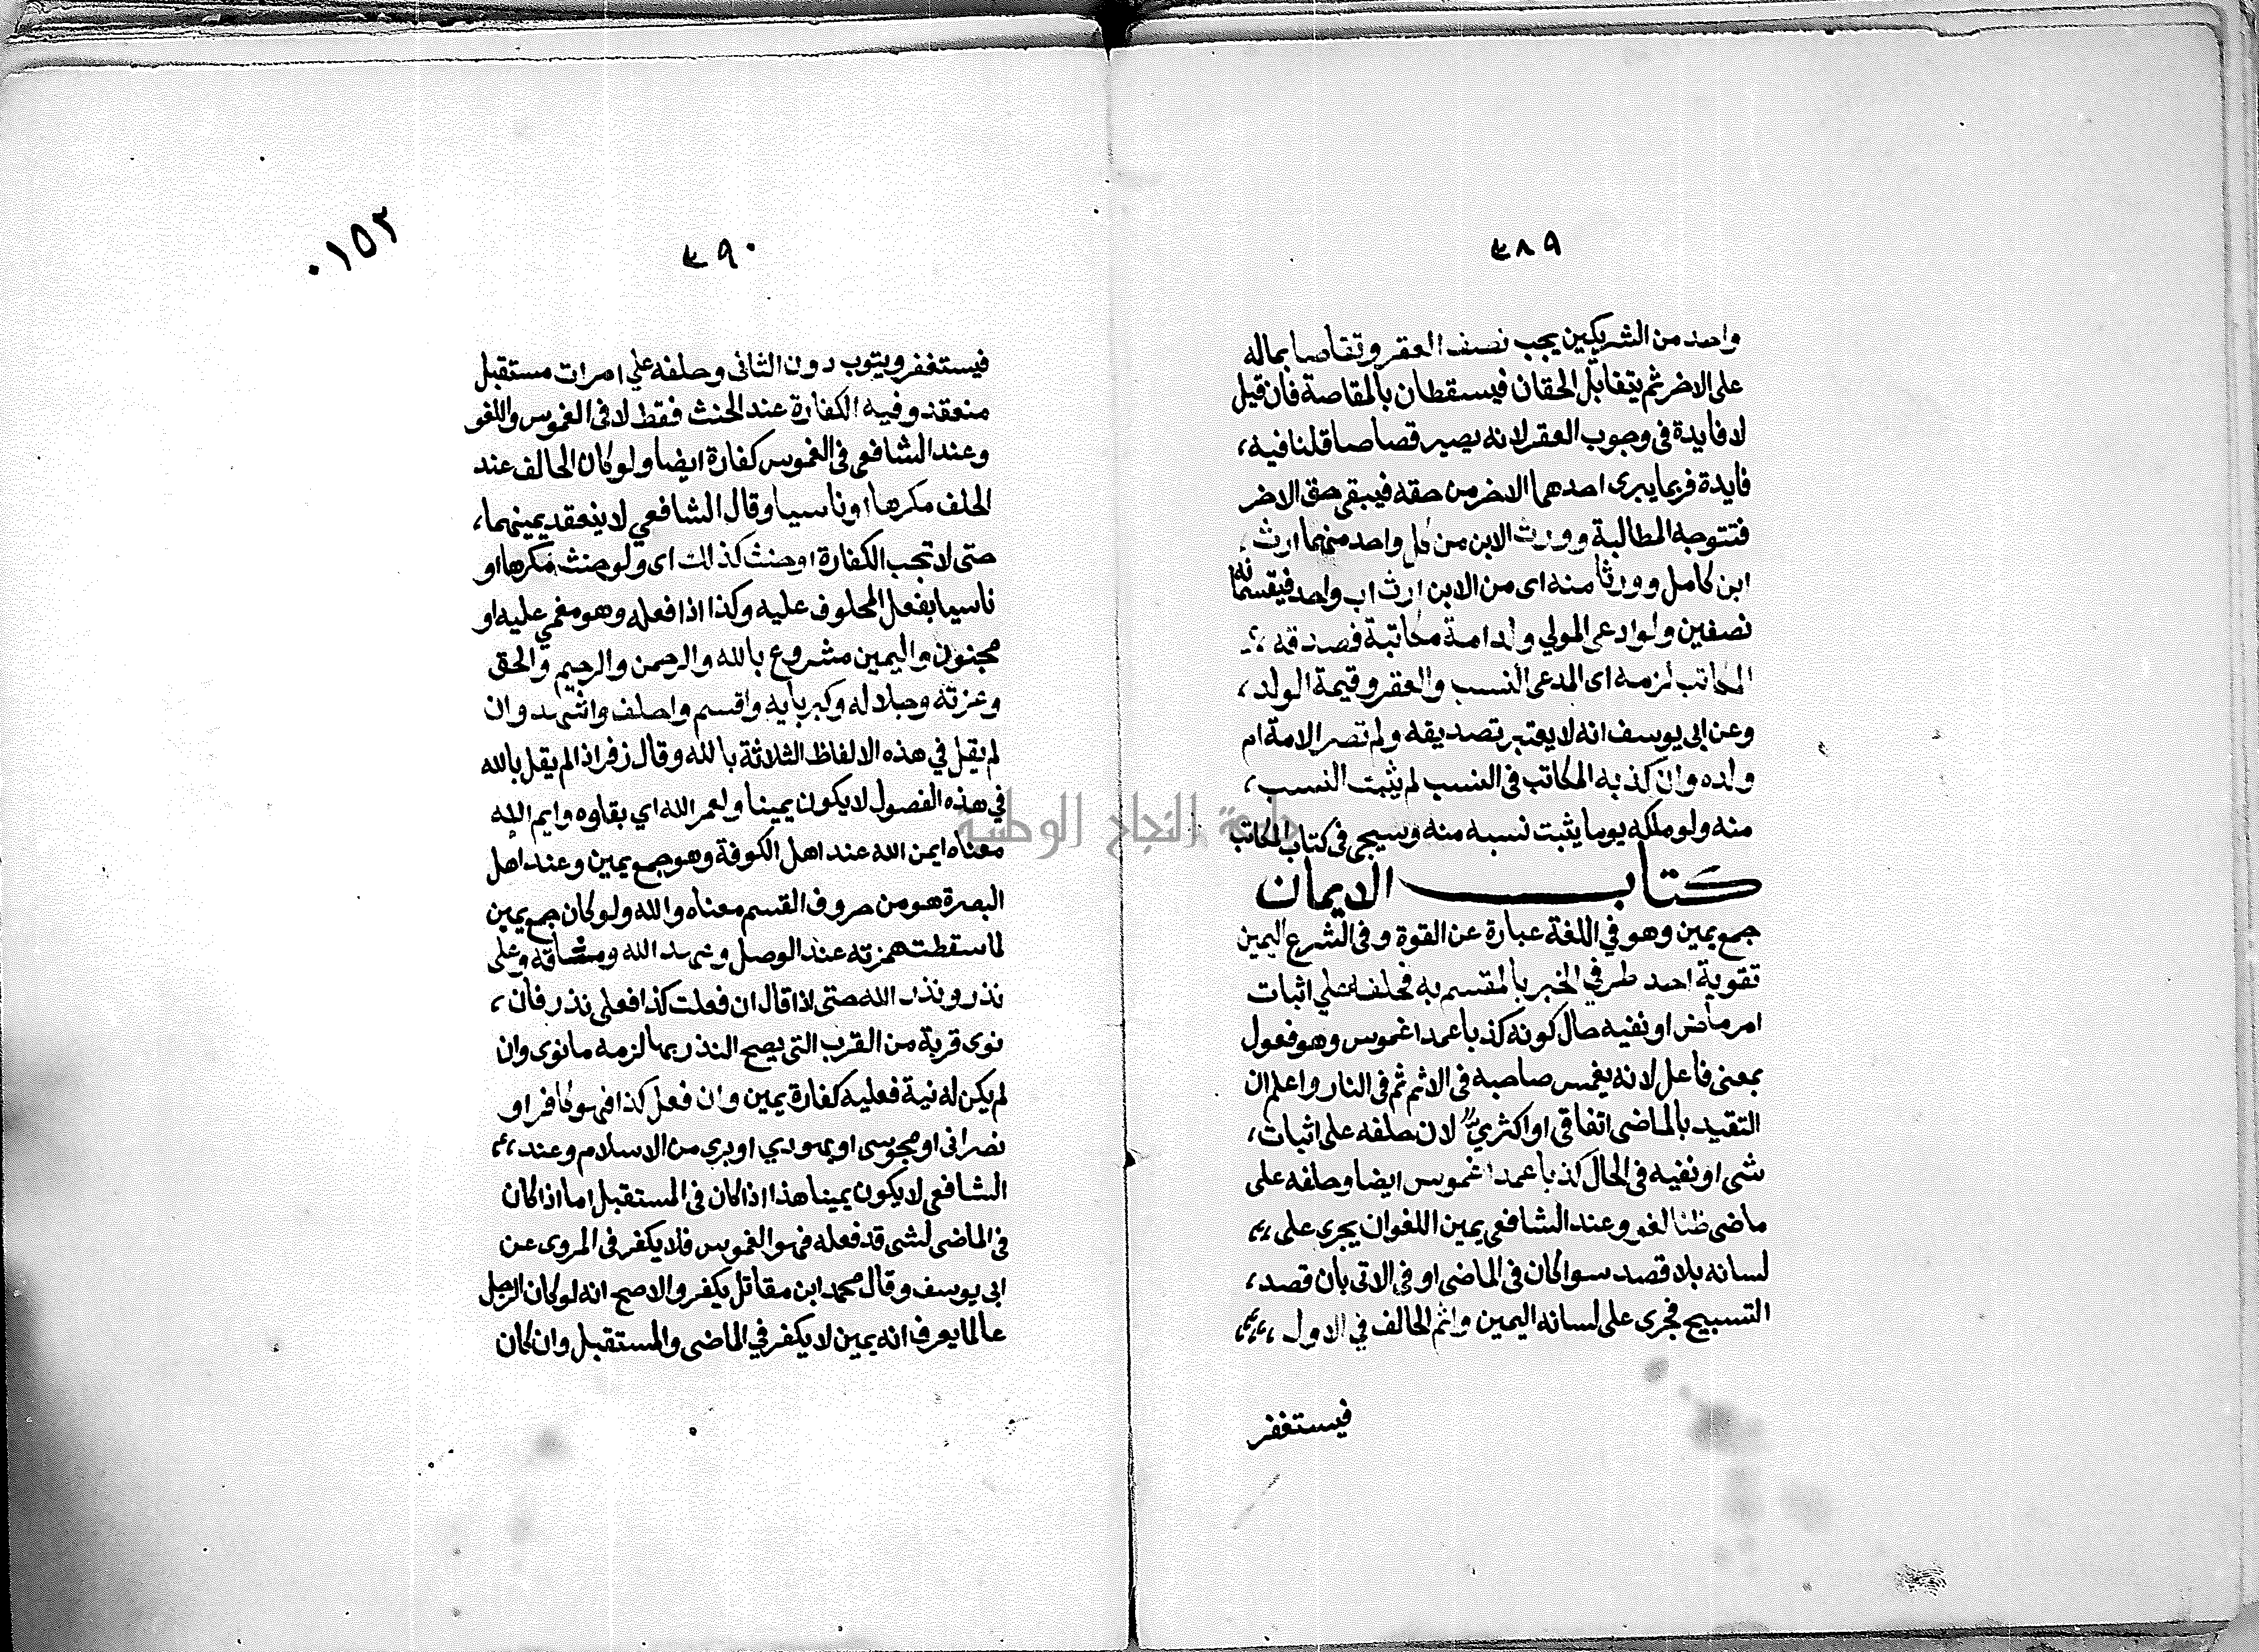 ٣٨٩
واحد من الشريكين يجب نصف العقر وتقاصا بماله
على الاخر ثم يتقابل الحقان فيسقطان بالمقاصة فان قيل
لا فايدة في وجوب العقر لانه يصير قصاصا قلنا فيه،
فايدة فربما يبرى احدهما الاخر من حقه فيبقى حق الاخر
فتتوجه المطالبة وورث الابن من كل واحد منهما ارث
ابن كامل وورثا منه اى من الابن ارث اب واحد فيقسمانه
نصفين ولو ادعى المولي ولد امة مكاتبة فصدقه
المكاتب لزمه اى المدعى النسب والعقر وقيمة الولد،
وعن ابى يوسف انه لا يعتبر تصديقه ولم تصر الامة ام
ولده وان كذبه المكاتب في النسب لم يثبت النسب،
منه ولو ملكه يوما يثبت نسبه منه وسيجى في كتاب المكاتب
كتاب الايمان
جمع يمين وهو في اللغة عبارة عن القوة وفى الشرع اليمين
تقوية احد طرفي الخبر بالمقسم به فحلفه علي اثبات
امر ماض او نفيه حال كونه كذبا عمدا غموس وهو فعول
بمعنى فاعل لانه يغمس صاحبه في الاثم ثم في النار واعلم ان
التقيد بالماضى اتفاقي او اكثري لان حلفه على اثبات،
شى او نفيه في الحال كذبا عمدا غموس ايضا وحلفه على
ماضى ظنا لغو وعند الشافعى يمين اللغو ان يجرى على
لسانه بلا قصد سوا كان في الماضى او في الاتى بان قصد،
التسبيح فجرى على لسانه اليمين واثم الحالف في الاول
فيستغفر
٣٩٠
٠١٥٢
فيستغفر ويتوب دون الثانى وحلفه علي امرات مستقبل
منعقد وفيه الكفارة عند الحنث فقط لا في الغموس واللغو
وعند الشافعى في الغموس كفارة ايضا ولو كان الحالف عند
الحلف مكرها او ناسيا وقال الشافعي لا ينعقد يمينهما،
حتى لا تجب الكفارة او حنث كذلك اى ولو حنث مكرها او
ناسيا بفعل المحلوف عليه وكذا اذا فعله وهو مغمي عليه او
مجنون واليمين مشروع بالله والرحمن والرحيم والحق
وعزته وجلاله وكبريايه واقسم واحلف واشهد وان
لم يقل في هذه الالفاظ الثلاثة بالله وقال زفر اذا لم يقل بالله
في هذه الفصول لا يكون يمينا ولعمر الله اي بقاوه وايم الله
معناه ايمن الله عند اهل الكوفة وهو جمع يمين وعند اهل
البصرة هو من حروف القسم معناه والله ولو كان جمع يمين
لما سقطت همزته عند الوصل وعهد الله وميثاقه وعلى
نذر ونذر الله حتى اذا قال ان فعلت كذا فعلى نذر فان،
نوى قربة من القرب التى يصح النذر بها لزمه ما نوى وان
لم يكن له نية فعليه كفارة يمين وان فعل كذا فهو كافر او
نصرانى او مجوسى او يهودي او بري من الاسلام وعند
الشافعى لا يكون يمينا هذا اذا كان في المستقبل اما اذا كان
في الماضى لشى قد فعله فهو الغموس فلا يكفر في المروى عن
ابى يوسف وقال محمد ابن مقاتل يكفر والاصح انه لو كان الرجل
عالما يعرف انه يمين لا يكفر في الماضى والمستقبل وان كان
جامعة النجاح الوطنية